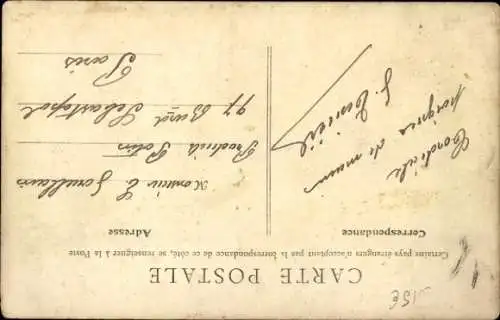 CARTE POSTALE
Certains pays étrangers n'acceptent pas la correspondance de ce côté, se renseigner à la Poste
Correspondance
Cordiale
poignée de main
Adresse
Monsieur E
Produits Potin
97 Bould Sebastopol
Paris
15€